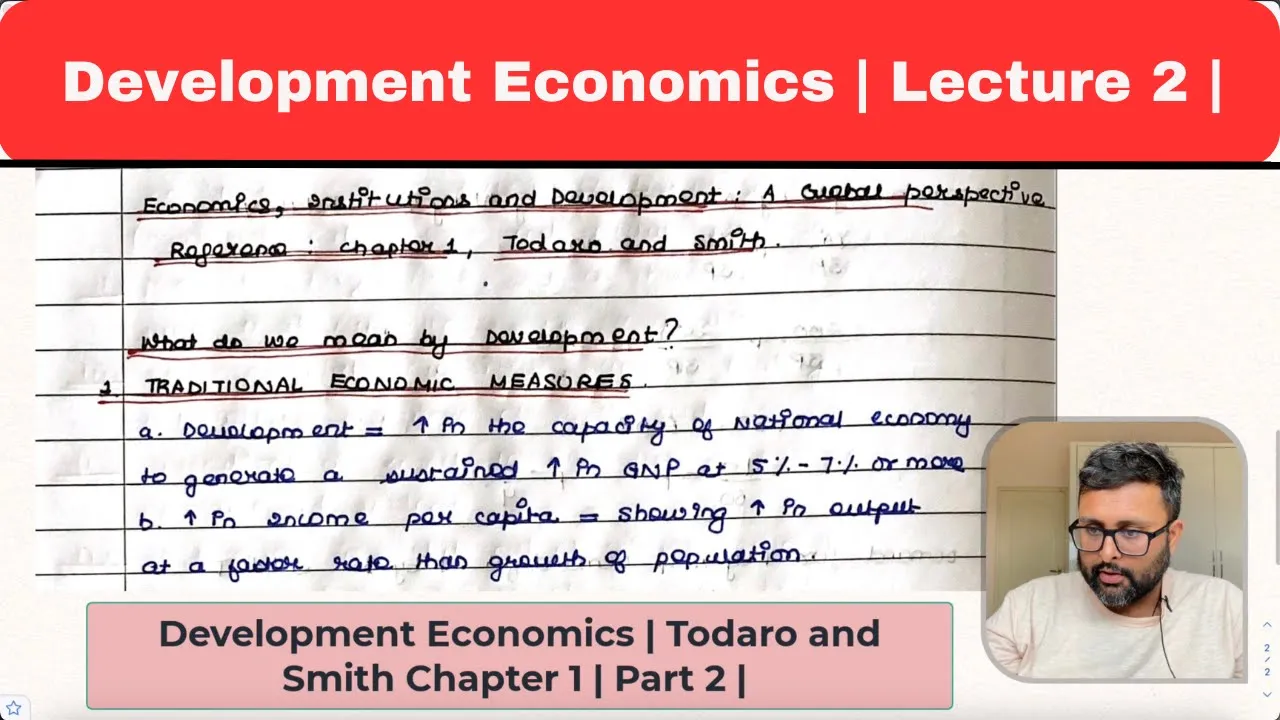 Development Economics | Lecture 2 |
Economics, Institutions and Development : A Global perspective
Reference : Chapter 1, Todaro and Smith.
What do we mean by Development?
1. TRADITIONAL ECONOMIC MEASURES.
a. Development = ↑ in the capacity of National economy
to generate a sustained ↑ in GNP at 5%-7% or more
b. ↑ in income per capita = showing ↑ in output
at a faster rate than growth of population.
Development Economics | Todaro and
Smith Chapter 1 | Part 2 |
2
/
2